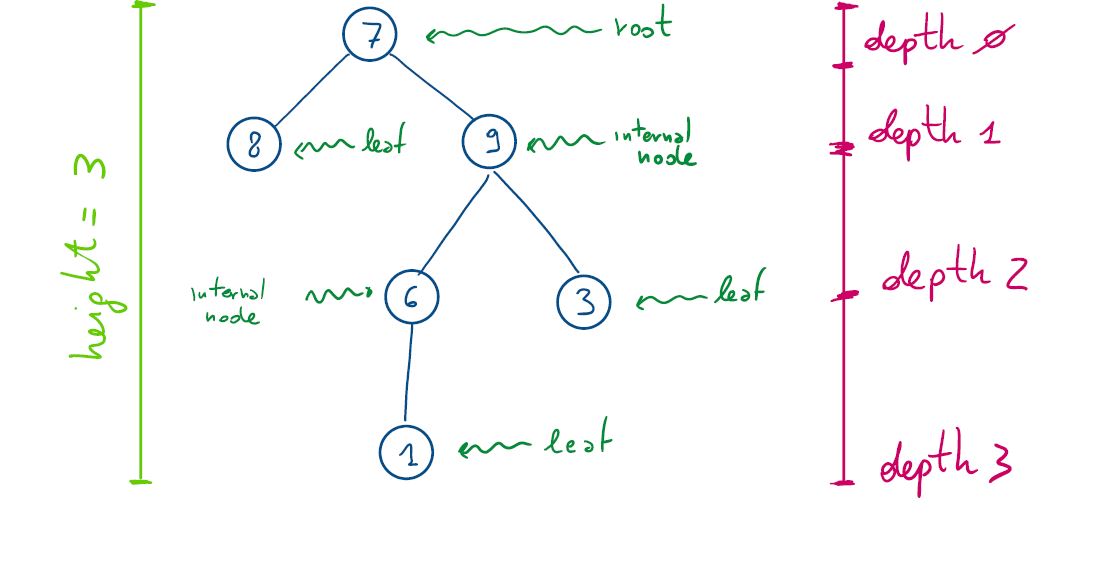 7
root
depth 0
8
leaf
9
internal
node
depth 1
height = 3
internal
node
6
3
leaf
depth 2
1
leaf
depth 3